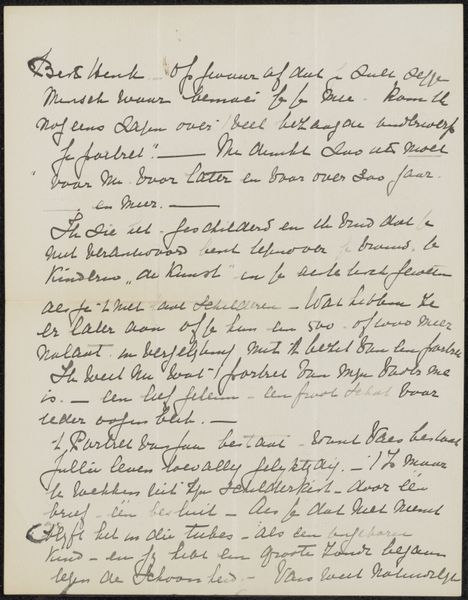 Beste Henk - Op gevaar af dat je zult zeggen
mensch waar bemoei je je mee. Kom ik
nog eens zagen over 't veel behandelde onderwerp
"je portret". — Me dunkt zoo iets moet
voor nu. Voor later en voor over 200 jaar.
en meer. —
Ik zie het geschilderd en ik vind dat je
niet verantwoord bent tegenover je vrouw, je
kinderen, "de Kunst" en je
als je 't niet laat schilderen - Wat hebben ze
er later aan of je hun een 500 of 1000 meer
nalaat in vergelijking met 't bezit van een portret
Ik weet nu wat 't portret van mijn Vader me
is. - een - een groot schat voor
ieder oogenblik. —
't Portret van Jan bestaat - want Vaes bestaat
jullie leven toevallig gelijktijdig. - 't Is maar
te wekken uit zijn schilderkist - door een
brief - een besluit - Als je dat niet neemt
blijft het in die tubes - als een ongeboren
kind - en je hebt een groote zonde begaan
tegen de Schoonheid - Vaes weet natuurlijk